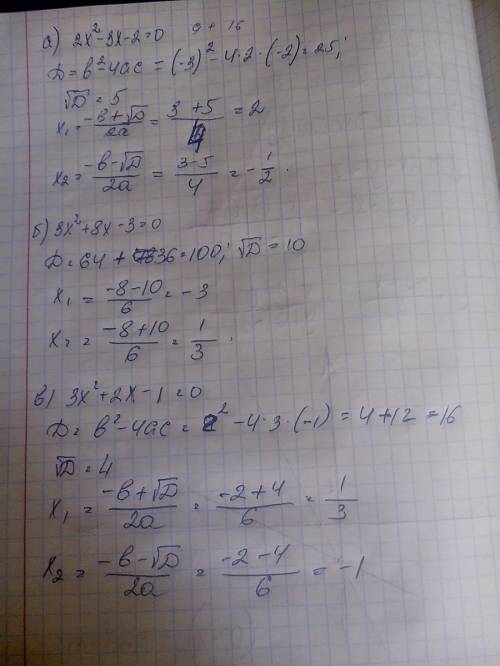 а) 2x²-3x-2=0 9 + 16
D=в²-4ac = (-3)²-4·2·(-2)=25;
√D = 5
x₁=(-в+√D)/2a = (3+5)/4 = 2
x₂=(-в-√D)/2a = (3-5)/4 = -1/2.
б) 3x²+8x-3=0
D=64+36=100; √D=10
x₁ = (-8-10)/6 = -3
x₂ = (-8+10)/6 = 1/3.
в) 3x²+2x-1=0
D=в²-4ac = 2²-4·3·(-1) = 4+12=16
√D=4
x₁ = (-в+√D)/2a = (-2+4)/6 = 1/3
x₂ = (-в-√D)/2a = (-2-4)/6 = -1